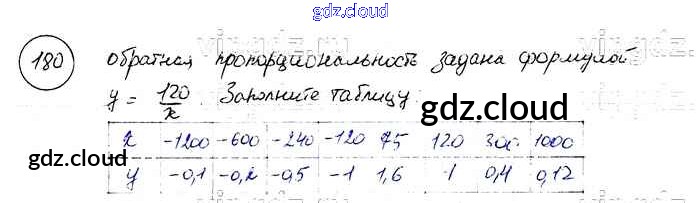 gdz.cloud
180 обратная пропорциональность задана формулой
y = 120/x. Заполните таблицу.
gdz.cloud
x -1200 -600 -240 -120 75 120 300 1000
gdz.cloud
y -0,1 -0,2 -0,5 -1 1,6 1 0,4 0,12